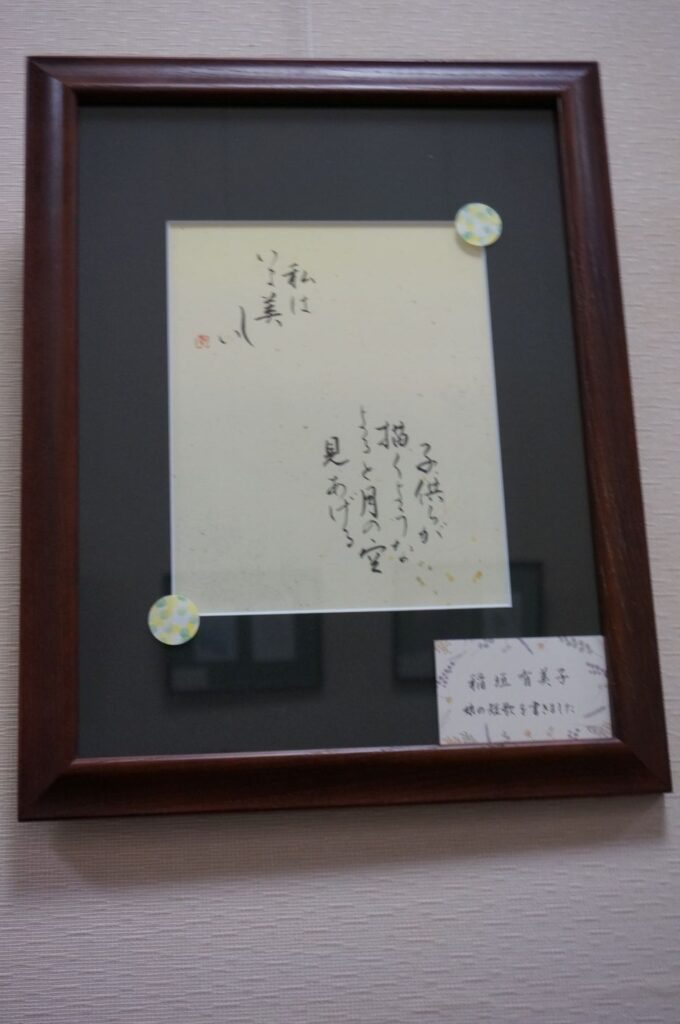 子供らが
描くような
よると月の空
見あげる
私は
いま美
しい
稲垣有美子
娘の短歌を書きました